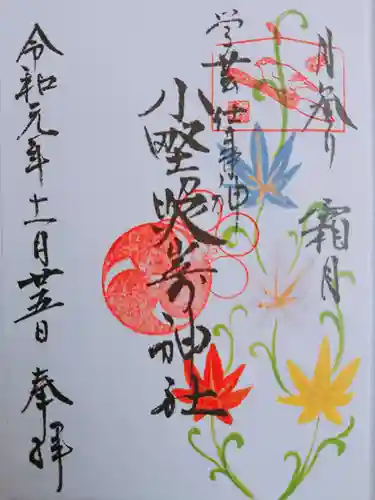 月参り 霜月
学芸仕事神
小野照崎神社
令和元年十一月廿五日 奉拝